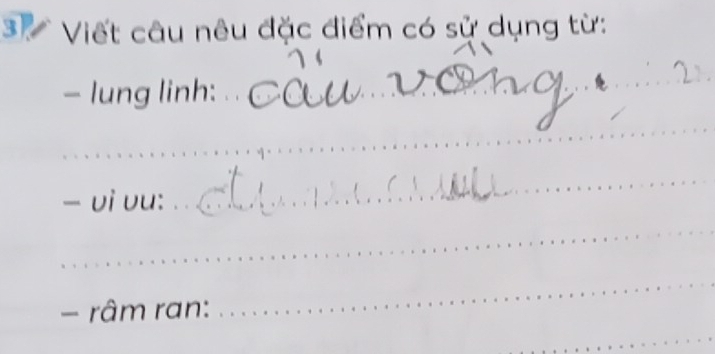 3 Viết câu nêu đặc điểm có sử dụng từ:
- lung linh: cầu vồng
- vi vu:
- râm ran: